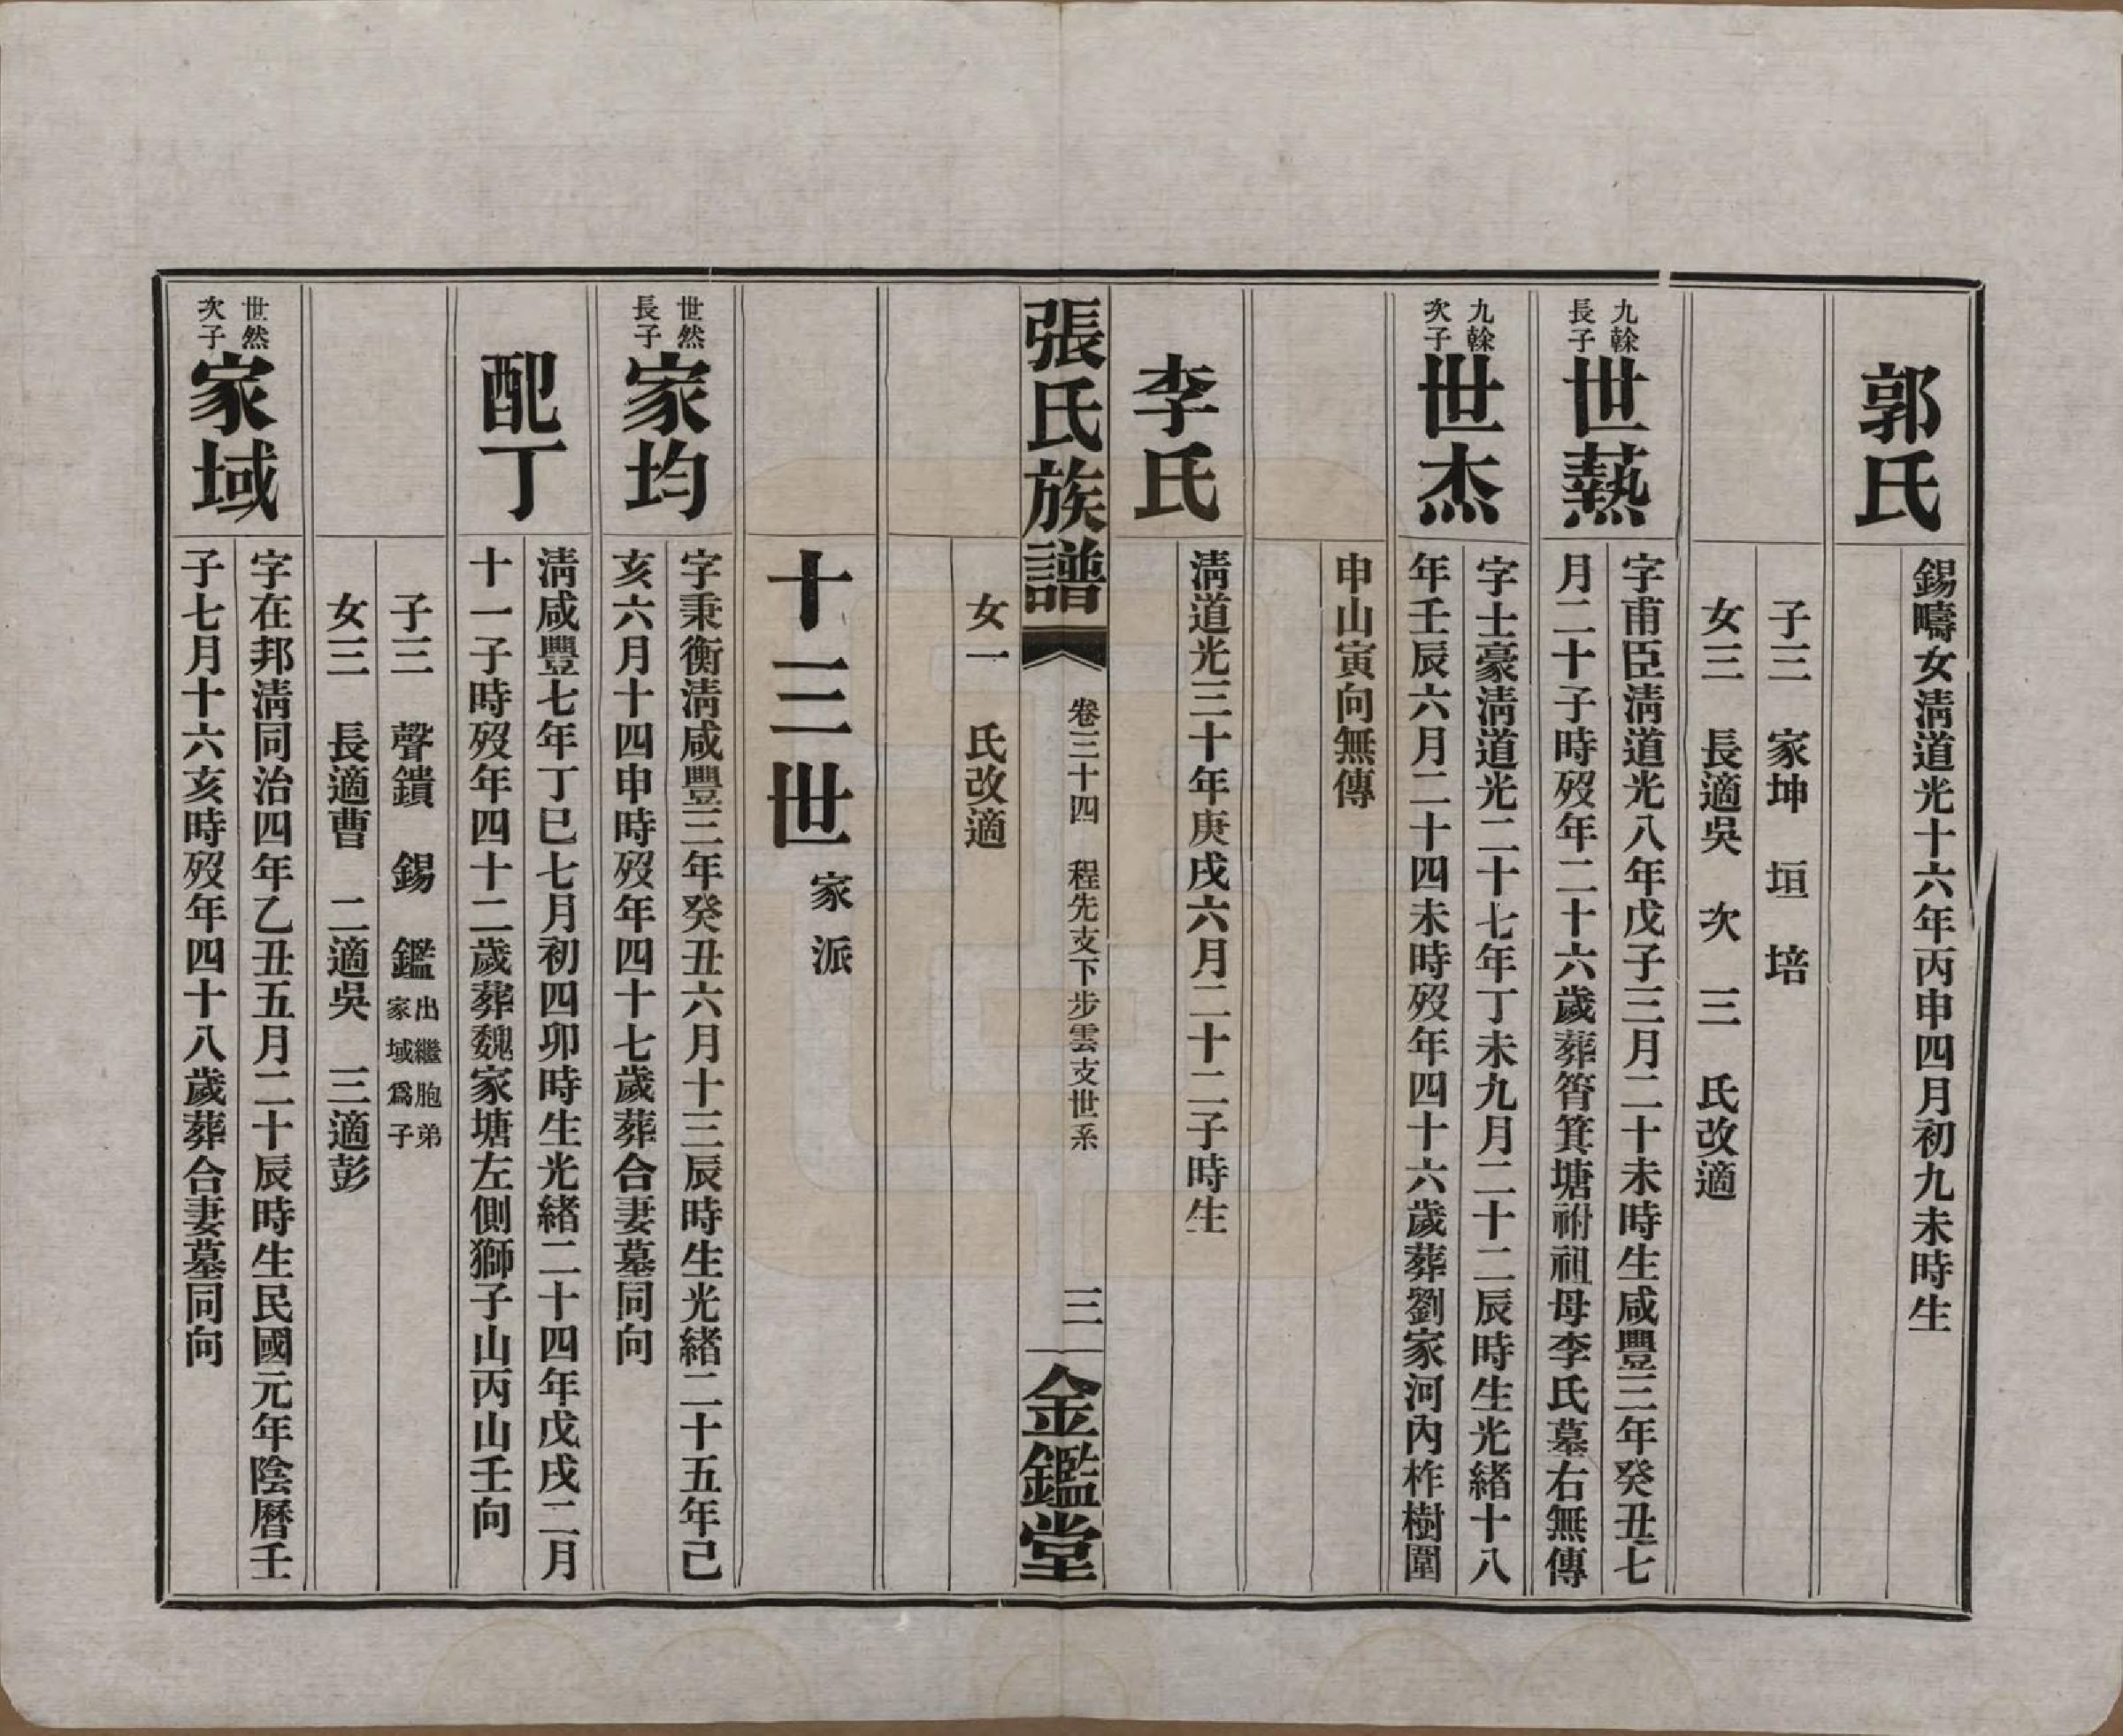 郭氏
錫疇女淸道光十六年丙申四月初九未時生
子三　家坤　垣　培
女三　長適吳　次　三　氏改適
九榦長子
世爇
字甫臣淸道光八年戊子三月二十未時生咸豐三年癸丑七
月二十子時歿年二十六歲葬筲箕塘祔祖母李氏墓右無傳
九榦次子
世杰
字士豪淸道光二十七年丁未九月二十二辰時生光緒十八
年壬辰六月二十四未時歿年四十六歲葬劉家河內柞樹圍
申山寅向無傳
李氏
淸道光三十年庚戌六月二十二子時生
張氏族譜
卷三十四　程先支下步雲支世系
三
金鑑堂
女一　氏改適
十三世 家派
世然長子
家均
字秉衡淸咸豐三年癸丑六月十三辰時生光緒二十五年己
亥六月十四申時歿年四十七歲葬合妻墓同向
配丁
淸咸豐七年丁巳七月初四卯時生光緒二十四年戊戌二月
十一子時歿年四十二歲葬魏家塘左側獅子山丙山壬向
子三　聲鐀　錫　鑑 出繼胞弟家域爲子
女三　長適曹　二適吳　三適彭
世然次子
家域
字在邦淸同治四年乙丑五月二十辰時生民國元年陰曆壬
子七月十六亥時歿年四十八歲葬合妻墓同向